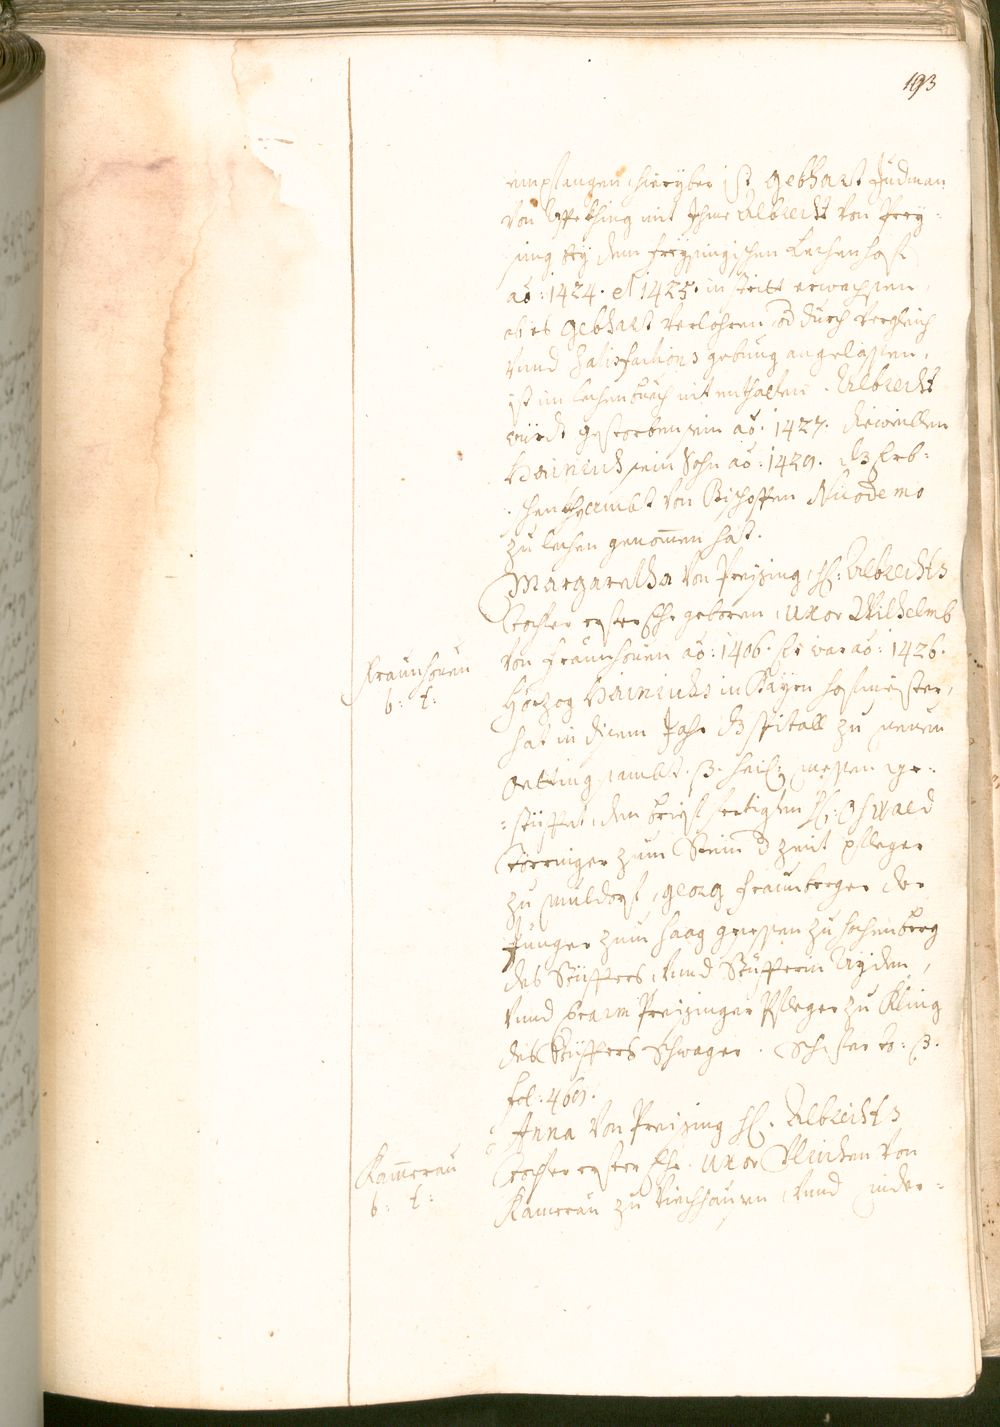 193
empfangen, hieryber ist Gebhart Judman
von Affekhing mit Ihme Albrecht von Prey=
sing bey dem freysingischen Lechenhof
aō: 1424. et 1425. in stritt erwachsen,
ob es Gebhart verlohren, od durch vergleich
vnnd Satisfactions gebung angelassen,
ist im Lechenbuech nit enthalten. Albrecht
würdt gestorben sein aō. 1427. dieweillen
Hainrich sein Sohn aō: 1429. dz Erb=
schenkhenambt von Bischoffen Nicodemo
zu Lechen genom̄en hat.
Margaretha von Preysing, H: Albrechts
Tochter erster Ehe geboren, uxor Wilhelmb
Fraunhouen
b: t:
von Fraunhouen aō: 1406. Er war aō: 1426.
Herzog Hainrichs in Bayrn hofmeister,
hat in disem Jahr dz Spitall zu neuen
Oetting sambt. 3. heil: messen ge=
=stüfft, den brief fertigten H: Oswald
Törringer zum Stein d zeit pfleger
zu Muldorf, Georg Fraunberger der
Junger zum Haag gesessen zu hochenburg
des Stüffters, vnnd Stüfterin Ayden,
vnnd Erasm Preysinger Pfleger zu Kling
des Stüffters Schwager. 3.
fol: 469.
Anna von Preysing H. Albrechts
Kam̄erau
b: t:
Tochter erster Ehe. uxor Vlrichen von
Kamerau zu Viechhausen, vnnd nider=